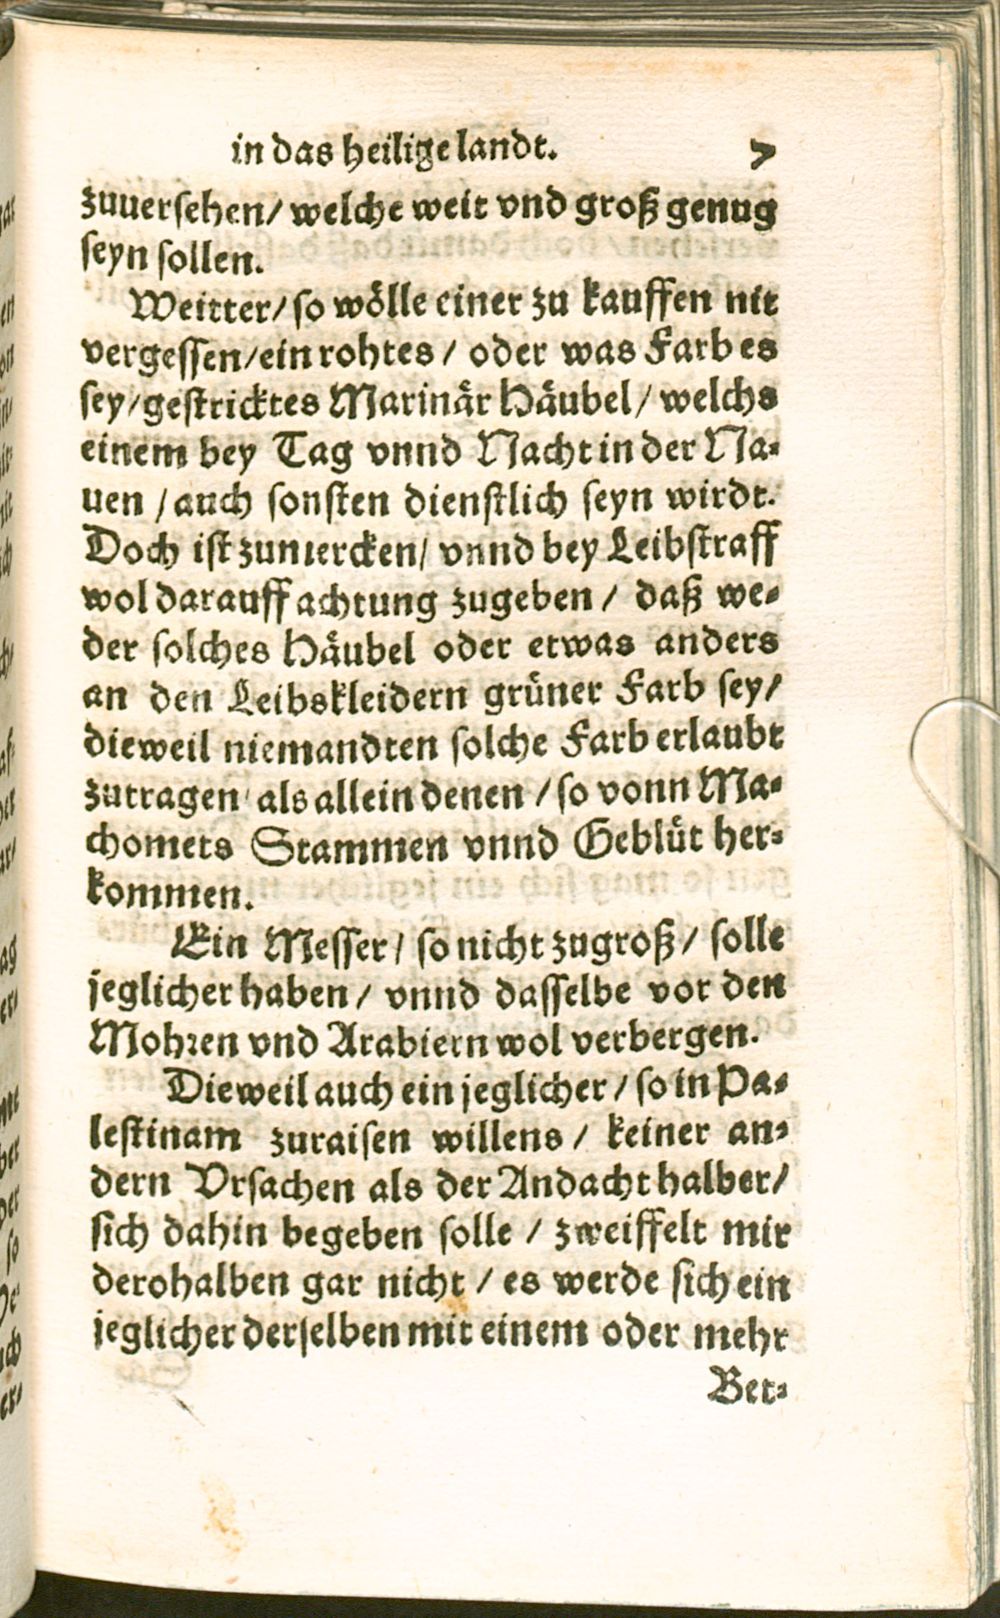 in das heilige landt. 7
zuuersehen/ welche weit vnd groß genug
seyn sollen.
Weitter/ so wölle einer zu kauffen nit
vergessen/ ein rohtes / oder was Farb es
sey/ gestricktes Marinär Häubel/ welchs
einem bey Tag vnnd Nacht in der Na-
uen / auch sonsten dienstlich seyn wirdt.
Doch ist zumercken/ vnnd bey Leibstraff
wol darauff achtung zugeben / daß we-
der solches Häubel oder etwas anders
an den Leibskleidern grüner Farb sey/
dieweil niemandten solche Farb erlaubt
zutragen/ als allein denen / so vonn Ma-
chomets Stammen vnnd Geblüt her-
kommen.
Ein Messer/ so nicht zugroß/ solle
jeglicher haben/ vnnd dasselbe vor den
Mohren vnd Arabiern wol verbergen.
Dieweil auch ein jeglicher / so in Pa-
lestinam zuraisen willens / keiner an-
dern Vrsachen als der Andacht halber/
sich dahin begeben solle / zweiffelt mir
derohalben gar nicht / es werde sich ein
jeglicher derselben mit einem oder mehr
Bet-